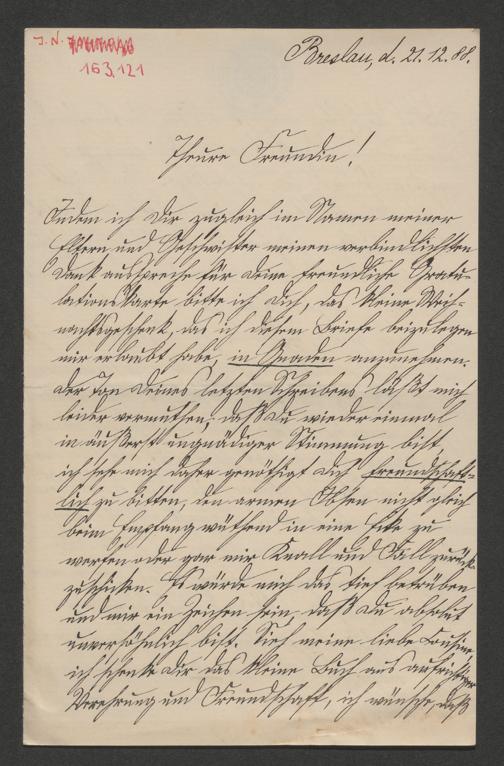 J. N.
163.121
Breslau, d. 21.12.88.
Theure Freundin!
Indem ich Dir zugleich im Namen meiner
Eltern und Geschwister meinen verbindlichsten
Dank ausspreche für Deine freundliche Gratu-
lationskarte bitte ich Dich, das kleine Weih-
nachtsgeschenk, das ich diesem Briefe beizulegen
mir erlaubt habe, in Gnaden anzunehmen.
Der Ton Deines letzten Schreibens läßt mich
leider vermuthen, daß Du wieder einmal
in äußerst ungnädiger Stimmung bist
ich sehe mich daher genöthigt Dich freundschaft-
lich zu bitten, den armen Ibsen nicht gleich
beim Empfang wüthend in eine Ecke zu
werfen oder gar mir Knall und Fall zurück
zuschicken. Es würde mich das tief betrüben
und mir ein Zeichen sein, daß Du absolut
unversöhnlich bist. Sieh meine liebe Cousine
ich schenke Dir das kleine Buch aus aufrichtiger
Verehrung und Freundschaft, ich wünsche, daß